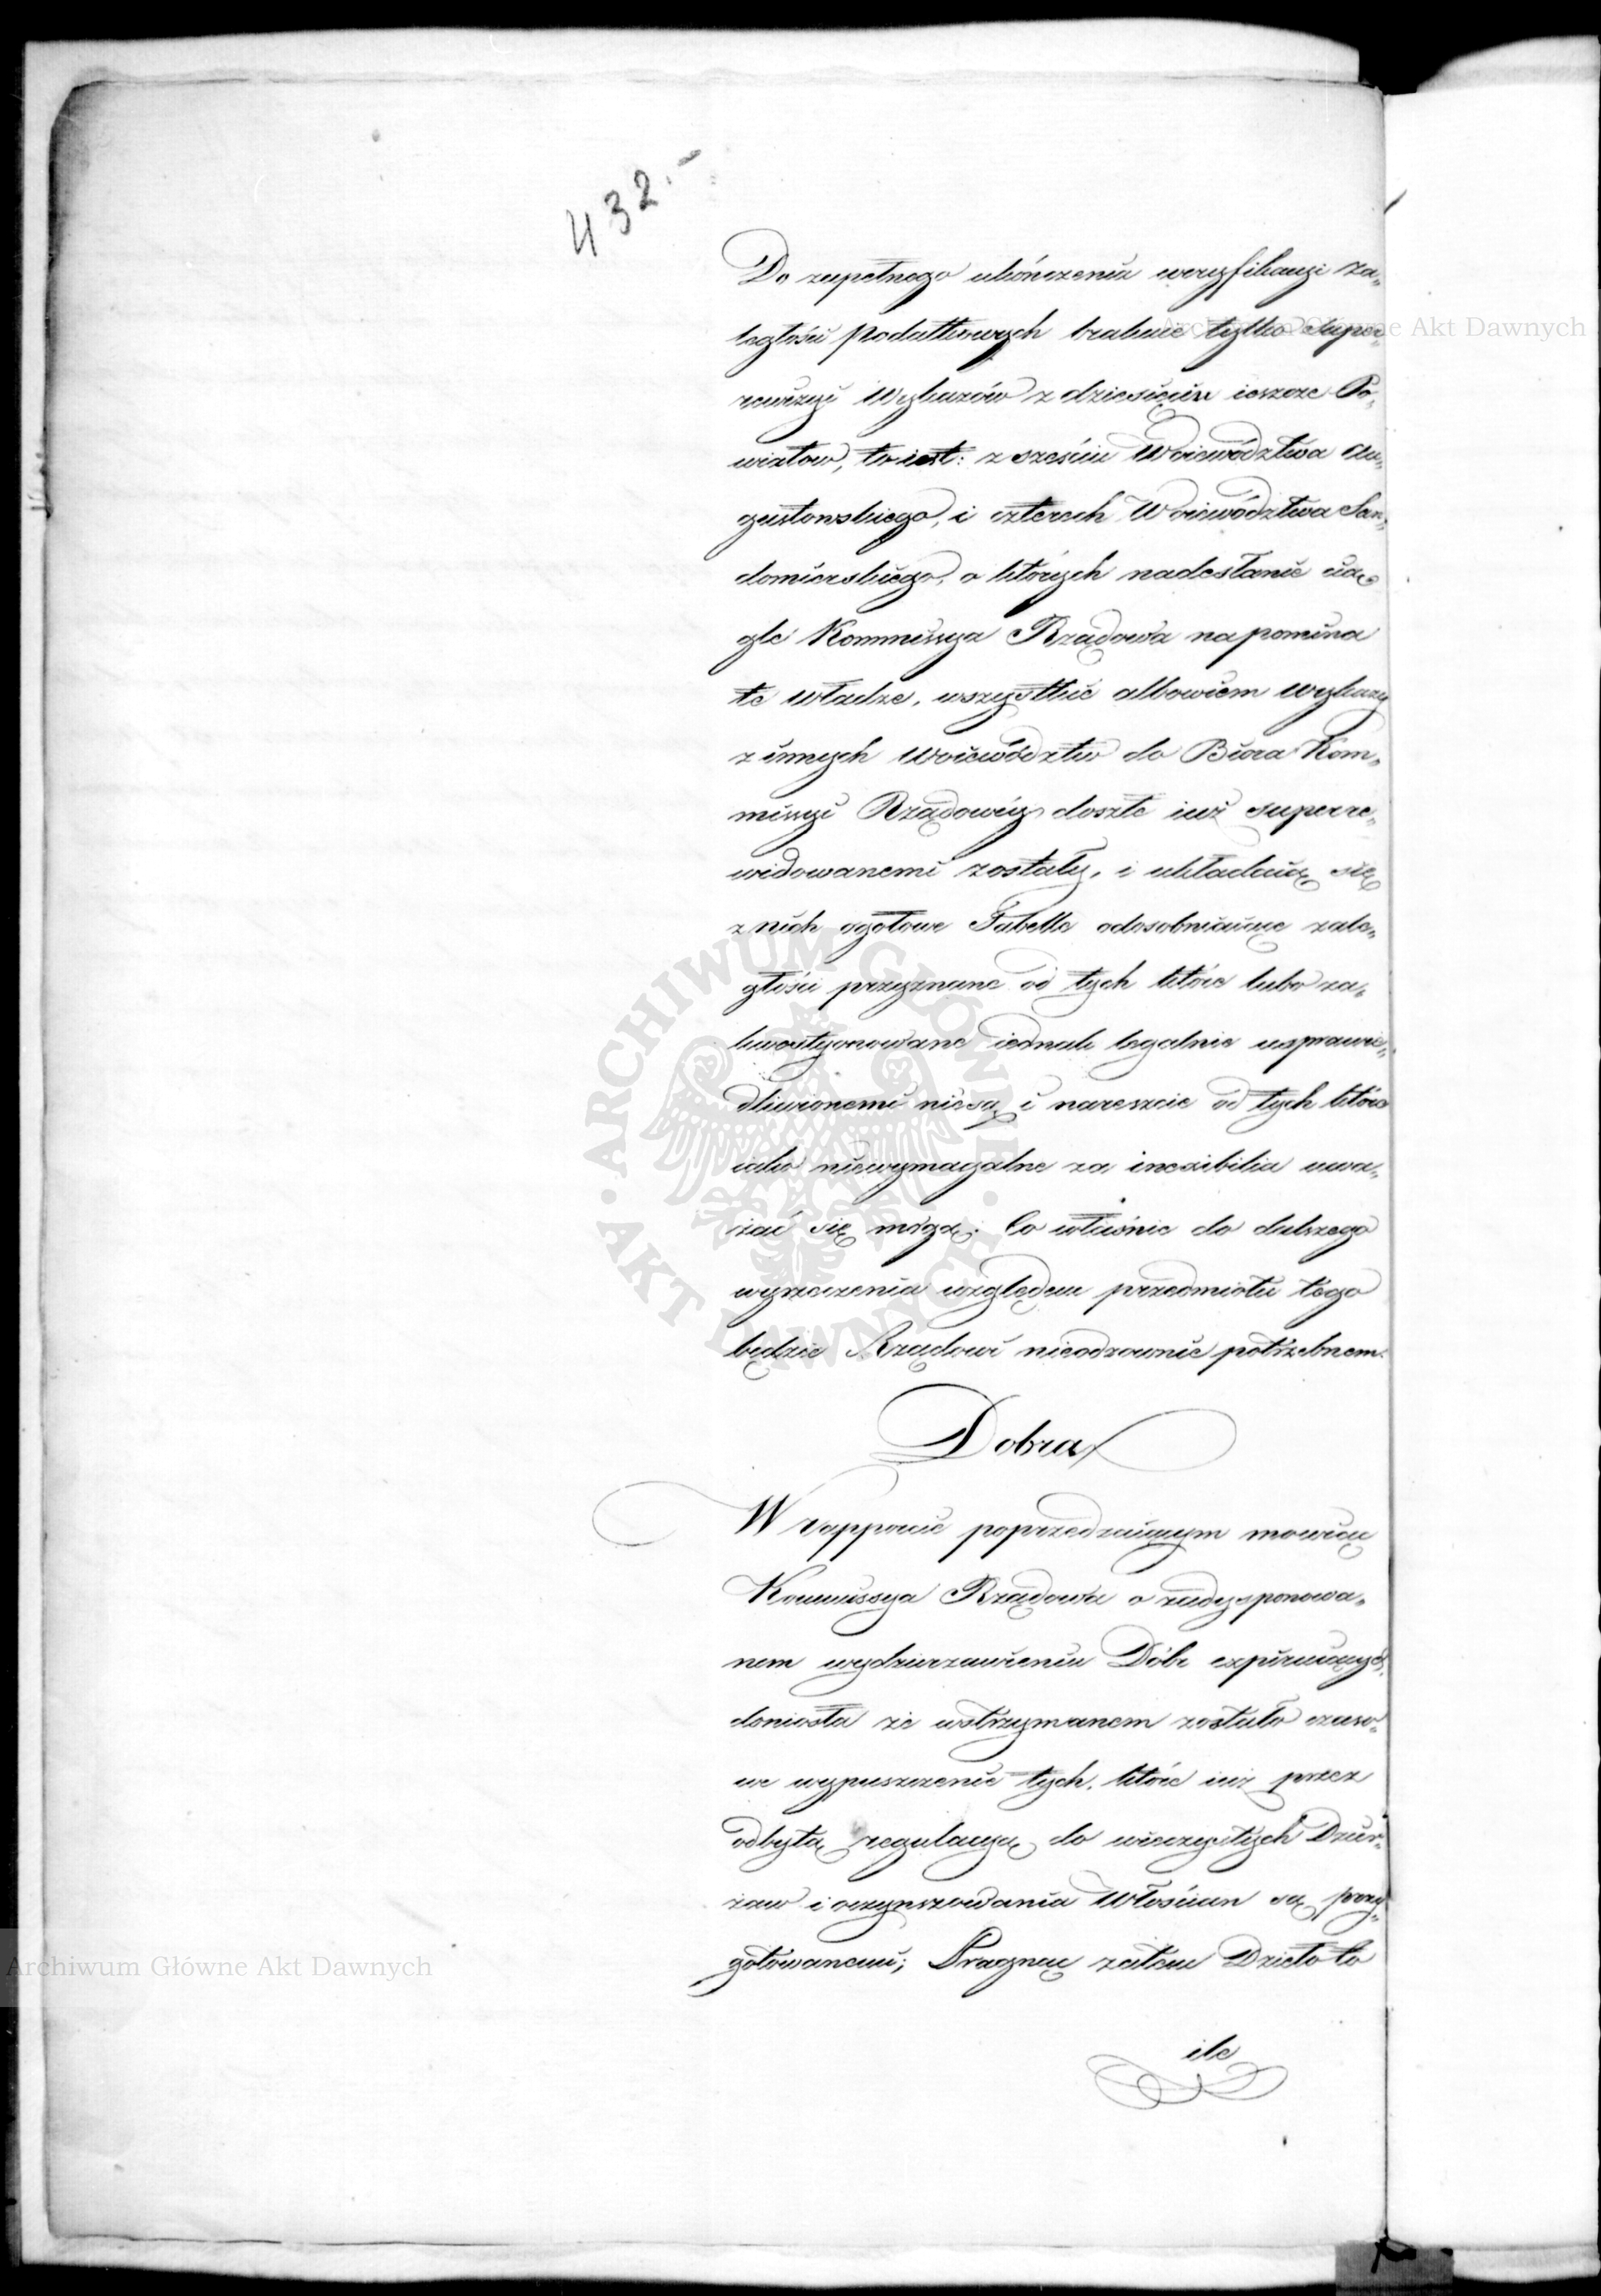 432.-
Do zupełnego ukończenia weryfikacyi za„
ległości podatkowych brakuie tylko super„
rewizyi Wykazów z dziesięciu ieszcze Po„
wiatow, to iest: z sześciu Woiewództwa Au„
gustowskiego, i czterech Woiewództwa San„
domierskiego, o których nadesłanie cią„
gle Kommissya Rządowa napomina
te władze, wszystkie albowiem wykazy
z innych Woiewództw do Biora Kom„
missyi Rządowéy doszłe iuż superre„
widowanemi zostały, i układaią się
z nich ogołowe Tabelle odosobniaiące zale„
głości przyznane od tych które lubo za„
kwestyonowane iednak legalnie usprawie„
dliwionemi niesą, i nareszcie od tych które
iako niewymagalne za inexibilia uwa„
żać się mogą. Co właśnie do dalszego
wyrzeczenia względem przedmiotu tego
będzie Rządowi nieodzownie potrzebnem.
Dobra
W rapporcie poprzedzaiącym mowiąc
Kommissya Rządowa o zadysponowa„
nem wydzierzawieniu Dóbr expiruiących,
doniosła że wstrzymanem zostało czaso„
we wypuszczenie tych, które iuż przez
odbytą regulacyą do wieczystych Dzier„
żaw i oczynszowania Włościan są przy„
gotowanemi; Pragnąc zatem Dzieło to
ile
Archiwum Główne Akt Dawnych
Archiwum Główne Akt Dawnych
ARCHIWUM GŁÓWNE AKT DAWNYCH